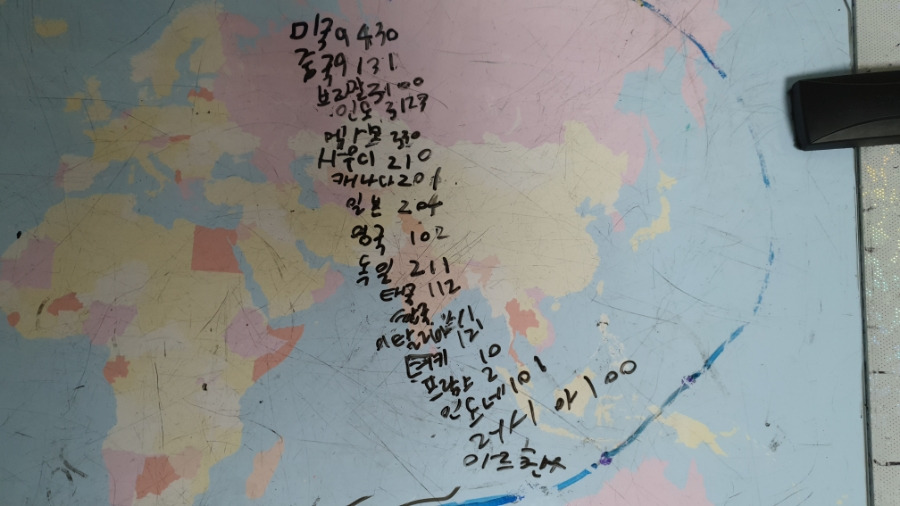 미국 9 430
중국 9 131
브라질 3100
인도 3123
사우디 210
캐나다 201
일본 204
영국 102
독일 211
태국 112
이탈리아 121
터키 10
프랑스 2
인도네 101
러시아 100